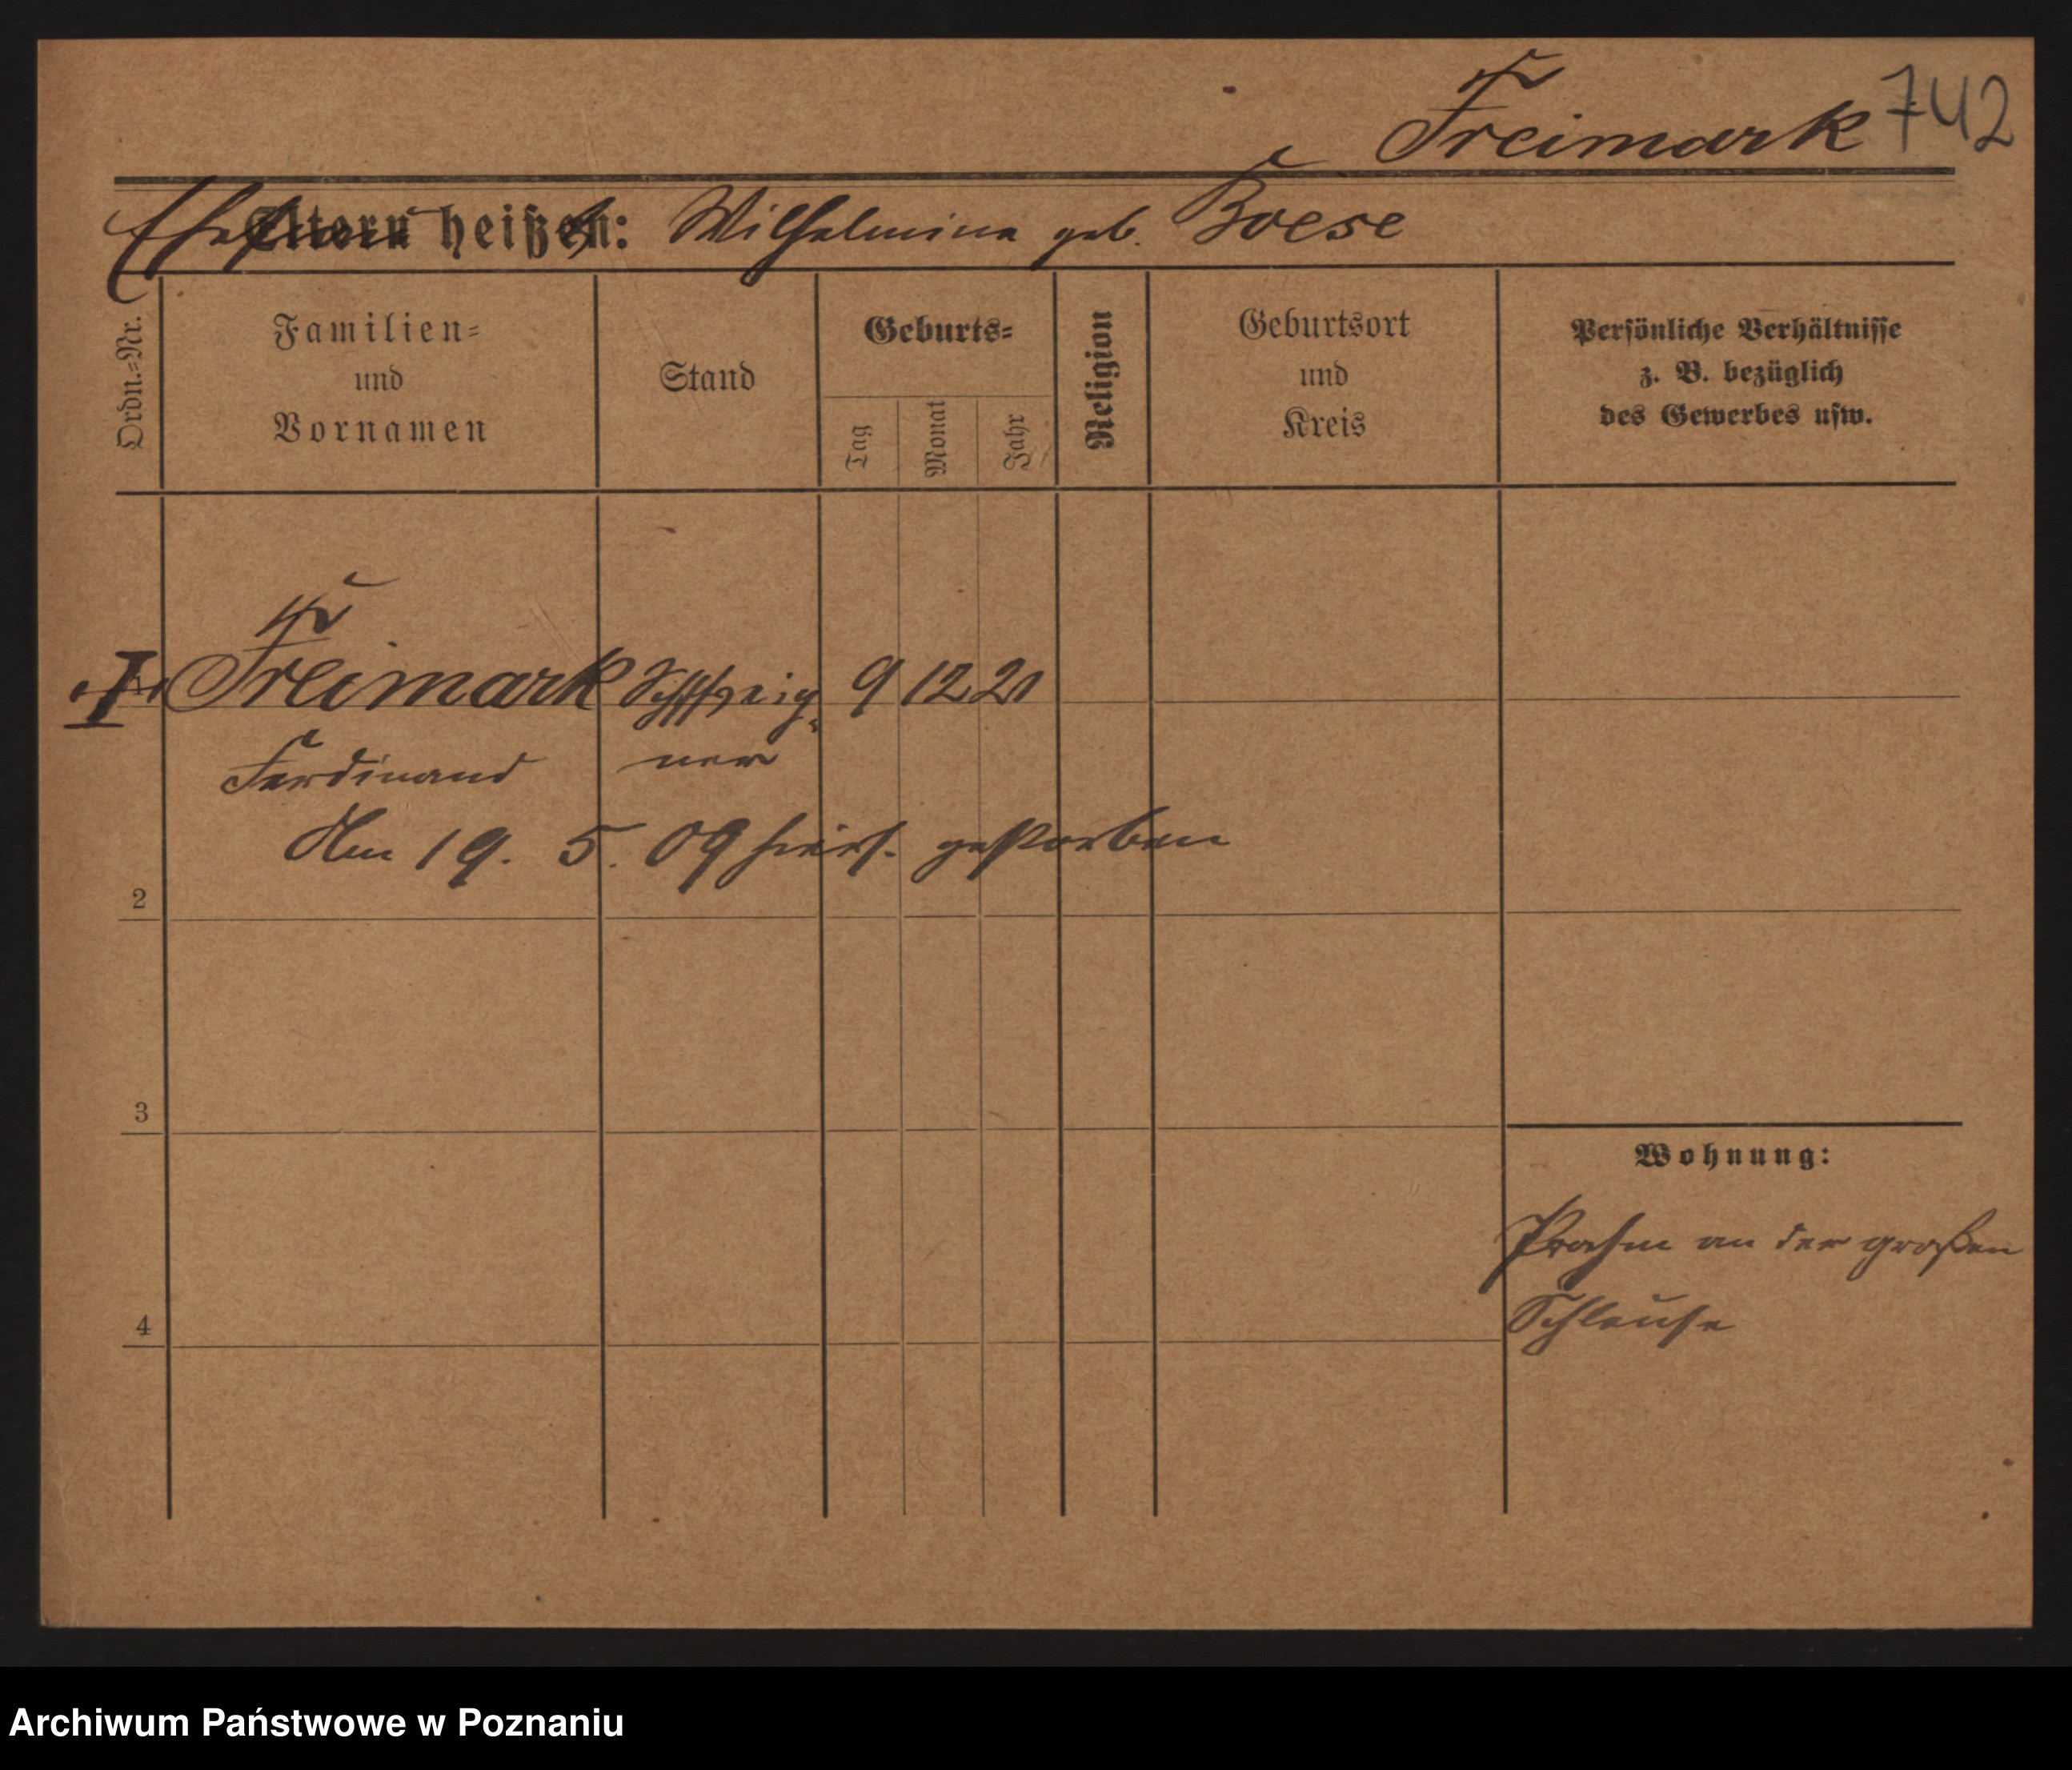 Freimark 742
Ehefrau heißt: Wilhelmine geb. Boese
Ordn.=Nr.
Familien=
und
Vornamen
Stand
Geburts=
Tag
Monat
Jahr
Religion
Geburtsort
und
Kreis
Persönliche Verhältnisse
z. B. bezüglich
des Gewerbes usw.
I Freimark Schiffseig= 9 12 21
Ferdinand ner
Am 19. 5. 09 hiers. gestorben
2
3
4
Wohnung:
Prahm an der großen
Schleuse
Archiwum Państwowe w Poznaniu